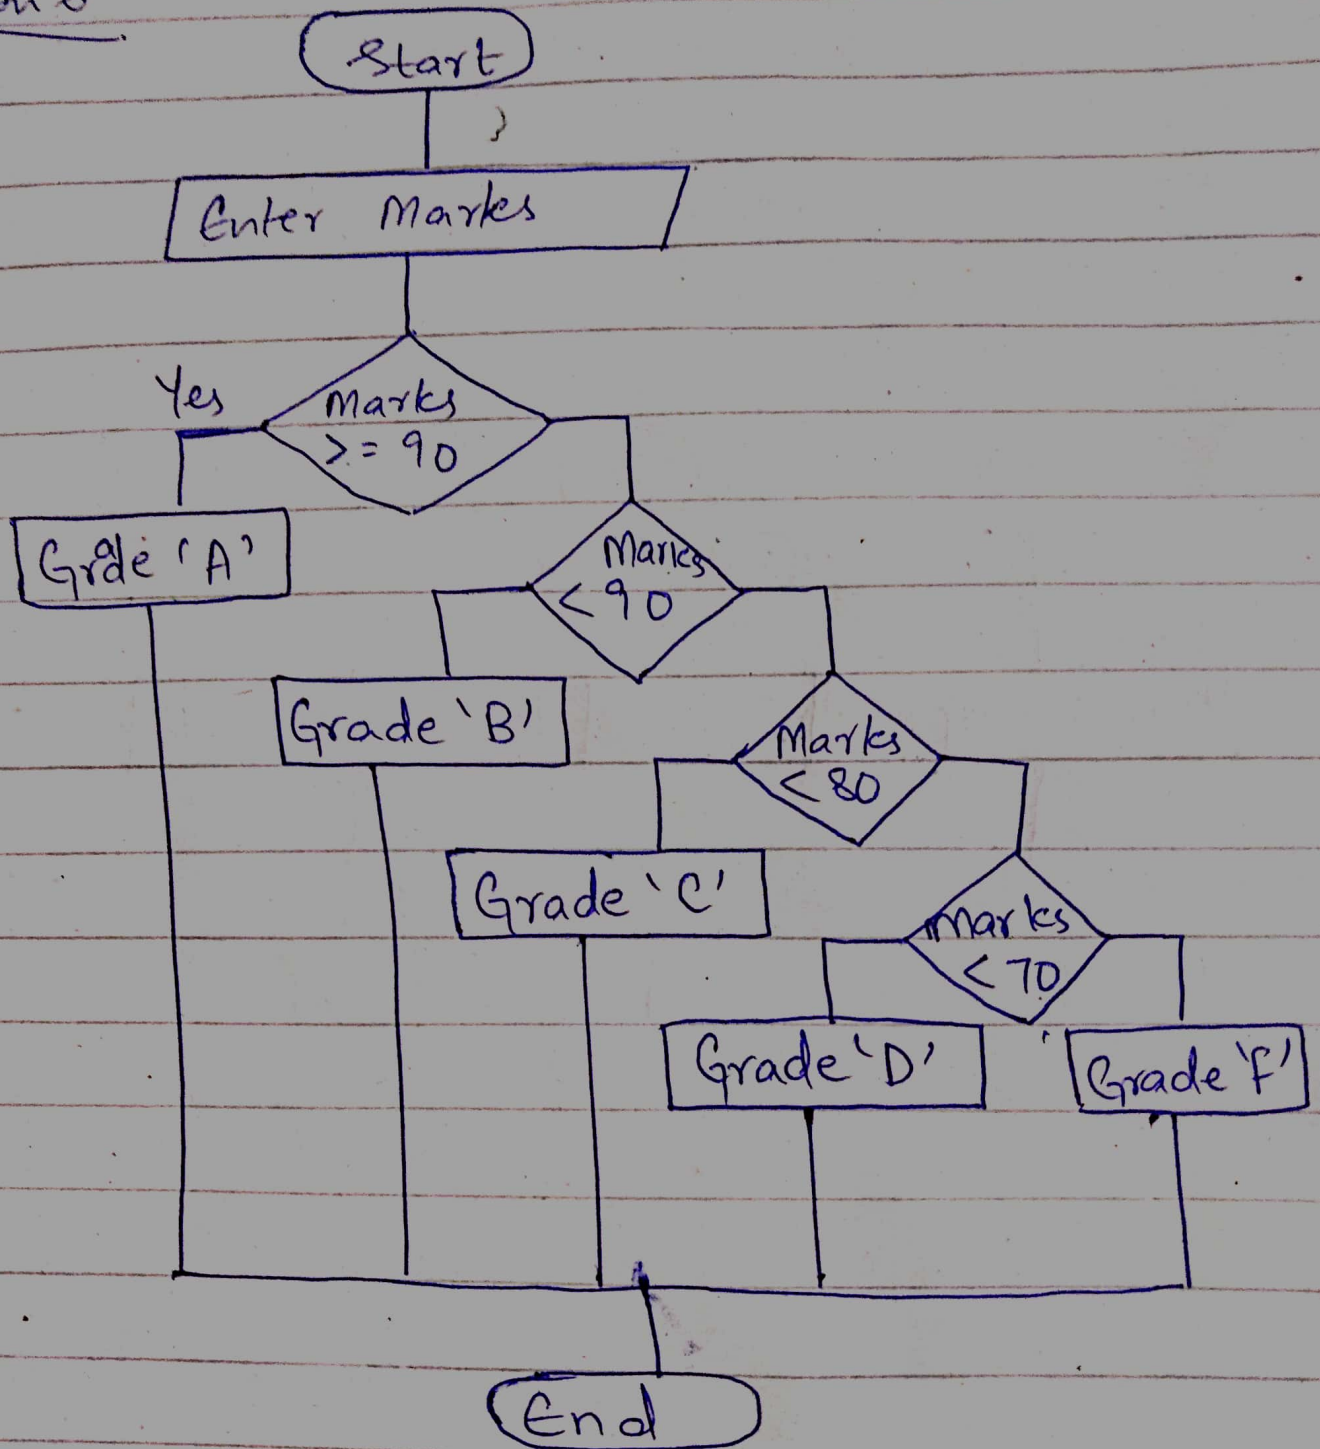 Start
Enter Marks
Yes
Marks
>= 90
Grade 'A'
Marks
< 90
Grade 'B'
Marks
< 80
Grade 'C'
Marks
< 70
Grade 'D'
Grade 'F'
End